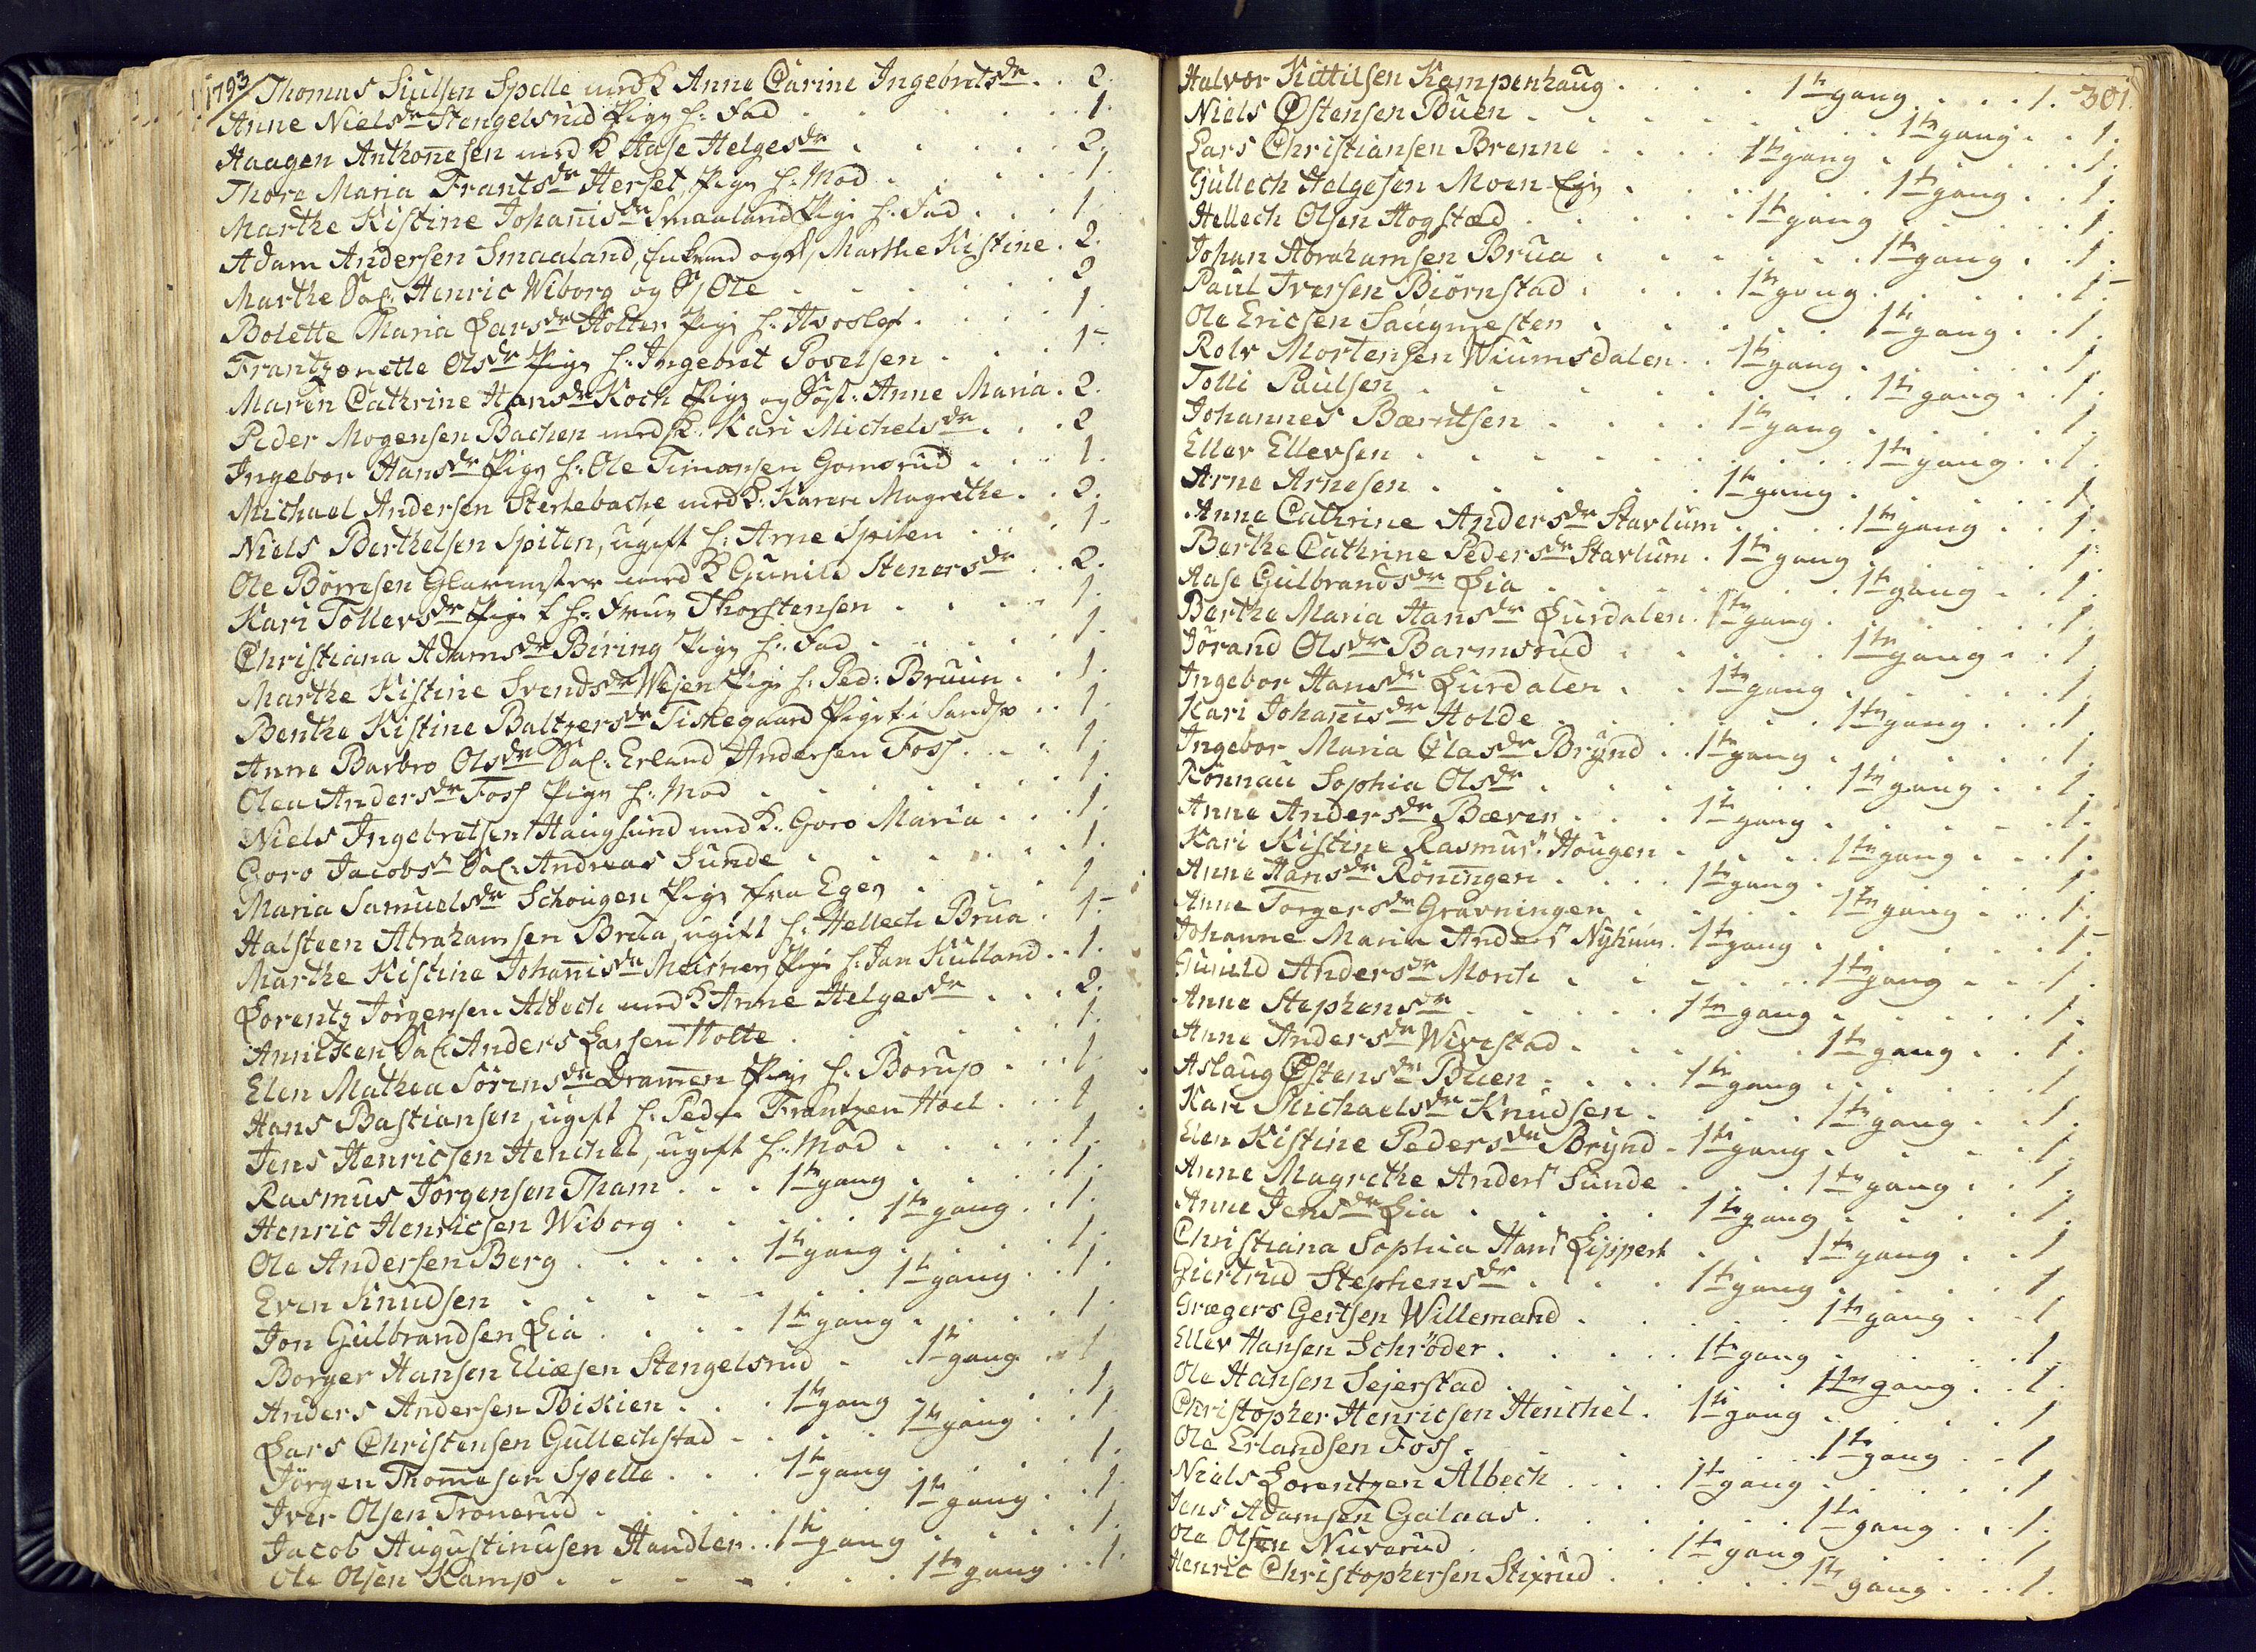 1793
Thomas Siulsen Spelle med K Anne Carine Ingebretsdr . . 2.
Anne Nielsdr Stengelsrud Pige h: Fad . . . . . 1.
Haagen Anthonesen med K Aase Helgesdr . . . . . 2.
Thore Maria Frantsdr Herset, Pige h: Mod . . . . 1.
Marthe Kistine Johanisdr Smaaland Pige h: Fad . . . 1.
Adam Andersen Smaaland, Enkemd og Marthe Kistine . 2.
Marthe Sal: Henric Wiborg og Ole . . . . . . 2
Bolette Maria Larsdr Holter Pige h: Hvoslef . . . . 1.
Frantzonette Olsdr Pige h: Ingebret Povelsen . . . . 1-
Maren Cathrine Hansdr Koch Pige og Søst: Anne Maria . 2.
Peder Mogensen Bachen med K. Kari Michelsdr . . . 2
Ingebor Hansdr Pige h: Ole Timansen Gomsrud . . . 1.
Michael Andersen Sterkebache med K: Karen Magrethe . . 2.
Niels Berthelsen Spiten, ugift h: Arne Spiten . . . 1-
Ole Børresen Glarmester med K Gunild Stenersdr . . 2.
Kari Tollevsdr Pige h: Thorstensen . . . . 1.
Christiana Adamsdr Biring Pige h: Fad . . . . . 1.
Marthe Kistine Svendsdr Wejen Pige h: Ped: Bruun . . 1.
Benthe Kistine Baltzersdr Tiskegaard Pige f: i Sandsv . . 1.
Anne Barbro Olsdr Sal: Erland Andersen Foss . . . 1.
Olea Andersdr Foss Pige h: Mod . . . . . . 1.
Niels Ingebretsen Haugsund med K: Goro Maria . . . 1.
Goro Jacobs Sal: Andreas Sunde . . . . . . 1.
Maria Samuelsdr Schougen Pige fra Eger . . . . 1
Halsteen Abrahamsen Brua, ugift h: Hellech Brua . 1.-
Marthe Kistine Johanisdr Meisner Pige h: Jan Kulland . . 1.
Lorentz Jørgensen Albech med K Anne Helgesdr . . . 2.
Anniken Sal: Anders Larsen Holte . . . . . . 1.
Elen Mathea Sørensdr Dramen Pige h: Borup . . . 1.
Hans Bastiansen, ugift h: Peder Frantzen Hoel . . . 1
Jens Henricsen Henchel, ugift h: Mod . . . . . 1.
Rasmus Jørgensen Tham . . . 1te gang . . . . . 1.
Henric Henricsen Wiborg . . . . . 1te gang . . 1.
Ole Andersen Berg . . . . . 1te gang . . . . . 1.
Even Knudsen . . . . . . . 1te gang . . . 1.
Jon Gulbrandsen Lia . . . . 1te gang . . . . . 1.
Borger Hansen Eliæsen Stengelsrud . . 1te gang . . 1
Anders Andersen Bikien . . . 1te gang . . . . . 1.
Lars Christensen Gullechstad . . . . . 1te gang . . . 1.
Jørgen Thomesen Spelle . . . 1te gang . . . . . 1.
Iver Olsen Tronerud . . . . . . . 1te gang . . . 1.
Jacob Augustinusen Handler . . 1te gang . . . . . 1.
Ole Olsen Kamp . . . . . . . 1te gang . . . 1.
301.
Halvor Kittilsen Kampenhaug . . . . 1te gang . . . . 1.
Niels Østensen Buen . . . . . . . 1te gang . . . 1.
Lars Christiansen Brenne . . . . 1te gang . . . . . 1.
Gullech Helgesen Moen . . . . . . 1te gang . . . 1.
Hellech Olsen Hogstad . . . . . 1te gang . . . . . 1.
Johan Abrahamsen Brua . . . . . . 1te gang . . 1.
Paul Iversen Biørnstad . . . . 1te gang . . . . . 1.-
Ole Ericsen Saugmester . . . . . . 1te gang . . 1.
Rolv Mortensen Wiumsdalen . . 1te gang . . . . . 1
Tolli Paulsen . . . . . . . . 1te gang . . 1.
Johannes Bærntsen . . . . 1te gang . . . . . 1
Ellev Ellevsen . . . . . . . . 1te gang . . 1.
Arne Arnesen . . . . . . 1te gang . . . . . 1
Anne Cathrine Andersdr Stavlum . . . . 1te gang . . 1.
Berthe Cathrine Pedersdr Stavlum . 1te gang . . . . . 1.
Aase Gulbrandsdr Lia . . . . . . . 1te gang . . 1.
Berthe Maria Hansdr Lurdalen . 1te gang . . . . . 1.
Jørand Olsdr Barmsrud . . . . . . 1te gang . . 1.
Ingebor Hansdr Lurdalen . . . 1te gang . . . . . 1
Kari Johanisdr Holde . . . . . . 1te gang . . . 1
Ingebor Maria Clasdr Brynd . . 1te gang . . . . . 1.
Rønnau Sophia Olsdr . . . . . . 1te gang . . . 1.
Anne Andersdr Bæver . . . 1te gang . . . . . 1.
Kari Kistine Rasmus" Hougen . . . . 1te gang . . . 1.
Anne Hansdr Røningen . . . . 1te gang . . . . . 1.
Anne Torgersdr Gravningen . . . . . 1te gang . . . 1.
Johanne Maria Anders" Nyhuus . 1te gang . . . . . 1-
Gunild Andersdr Morch . . . . . . 1te gang . . . 1.
Anne Stephensdr . . . . . 1te gang . . . . . 1.
Anne Andersdr Wivestad . . . . . . 1te gang . . 1.
Aslaug Østensdr Buen . . . . 1te gang . . . . . 1
Kari Michaelsdr Knudsen . . . . . 1te gang . . 1.
Elen Kistine Pedersdr Brynd . 1te gang . . . . . 1.
Anne Magrethe Anders" Sunde . . . . 1te gang . . 1.
Anne Jensdr Lia . . . . . 1te gang . . . . . 1.
Christiana Sophia Hans" Lippert . . . 1te gang . . 1
Giertrud Stephensdr . . . . 1te gang . . . . . 1
Grægers Gertsen Willemand . . . . . 1te gang . . 1
Ellev Hansen Schrøder . . . . . 1te gang . . . . 1.
Ole Hansen Sejerstad . . . . . . 1te gang . . 1.
Christopher Henricsen Henchel . 1te gang . . . . . 1
Ole Erlandsen Foss . . . . . . . 1te gang . . 1
Niels Lorentzen Albech . . . . 1te gang . . . . . 1
Jens Adamsen Galaas . . . . . . 1te gang . . . 1.
Ole Olsen Nuverud . . . . . 1te gang . . . . . 1
Henric Christophersen Stixrud . . . . . 1te gang . . . 1.